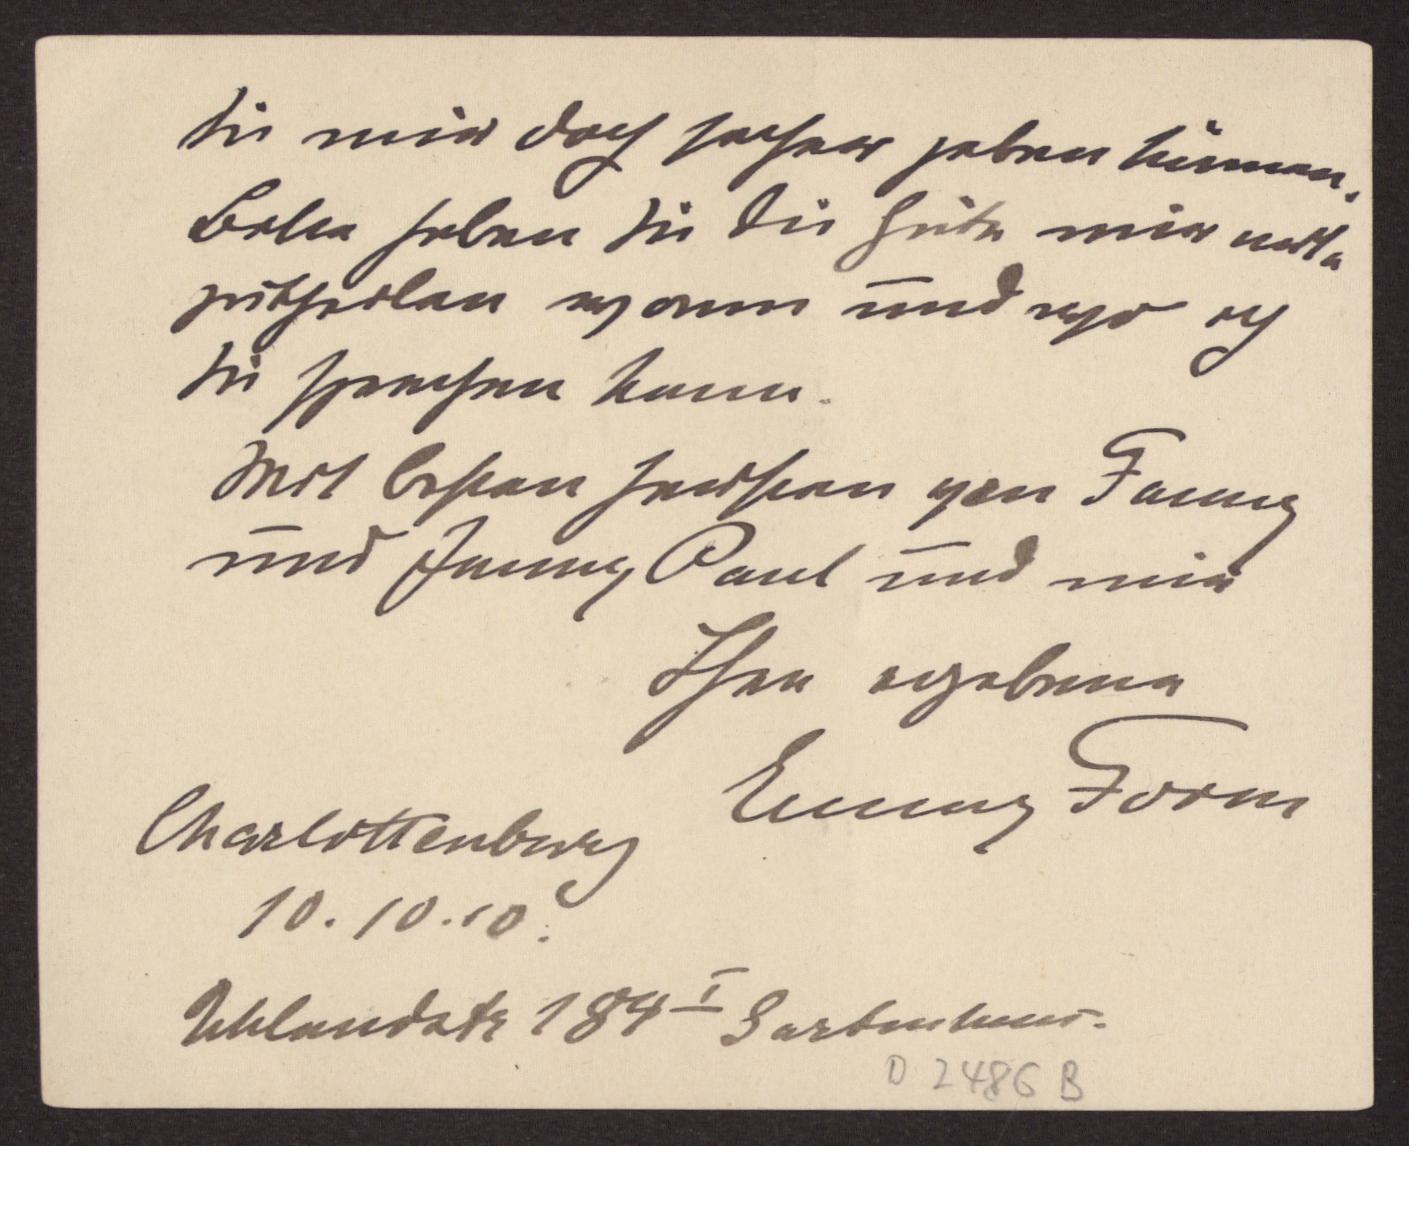 Sie mir doch sicher geben können.
Bitte haben Sie die Güte mir
mitzuteilen wann und wo ich
Sie sprechen kann.
Mit besten Grüssen von Fanny
und Jenny, Paul und mir
Ihre ergebene
Emmy Form
Charlottenburg
10.10.10.
Uhlandstr 184 I Gartenhaus.
D 2486 B